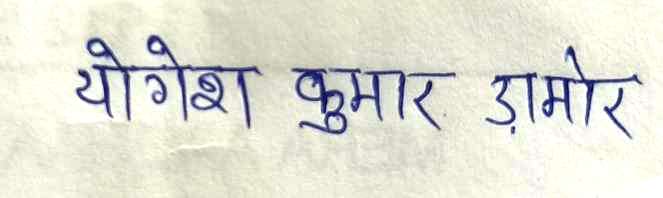 योगेश कुमार ड़ामोर